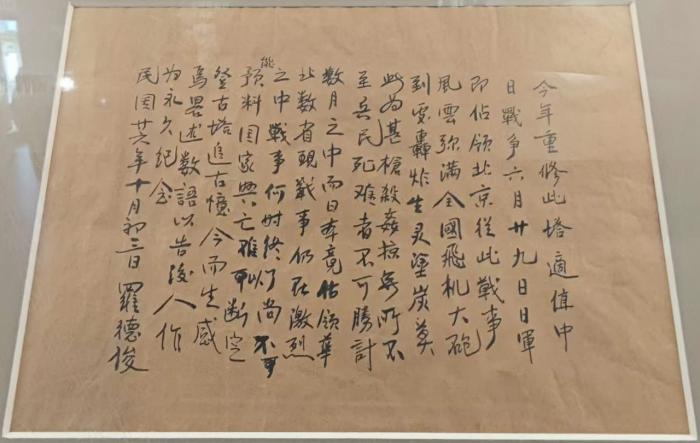 今年重修此塔適值中
日戰争六月廿九日日軍
即佔领北京從此戰事
風雲弥满全國飛机大砲
到處轟炸生灵塗炭莫
此为甚槍殺姦掠無所不
至兵民死难者不可勝計
数月之中而日本竟佔领華
北数省現戰事仍在激烈
之中戰事何时終了尚不可
能預料国家興亡难以断定
登古塔追古憶今而生感
焉畧述数語以告後人作
为永久纪念
民国廿六年十月初三日 羅德俊